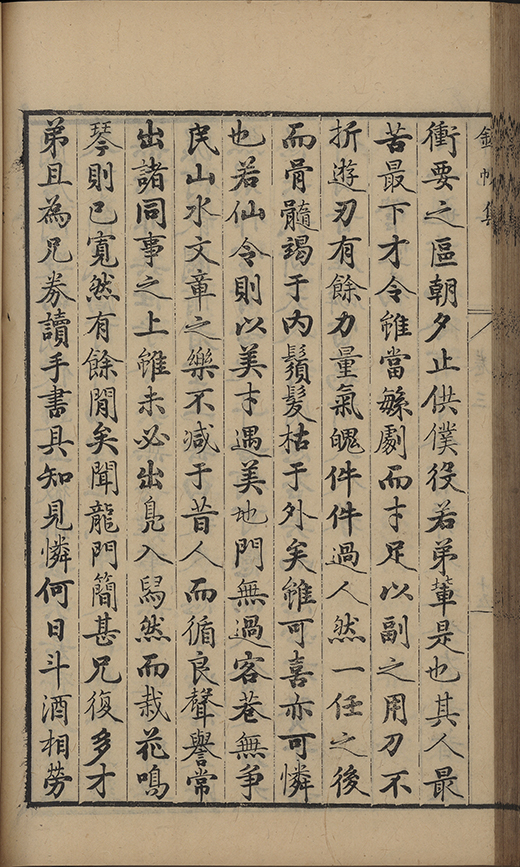 錦帆集
衝要之區朝夕止供僕役若弟輩是也其人最
苦最下才令雖當緐劇而才足以副之用刀不
折遊刃有餘力量氣魄件件過人然一任之後
而骨髓竭于內鬚髮枯于外矣雖可喜亦可憐
也若仙令則以美才遇美地門無過客巷無爭
民山水文章之樂不减于昔人而循良聲譽常
出諸同事之上雖未必出鳧入舄然而栽花鳴
琴則已寬然有餘閒矣聞龍門簡甚兄復多才
弟且為兄券讀手書具知見憐何日斗酒相勞